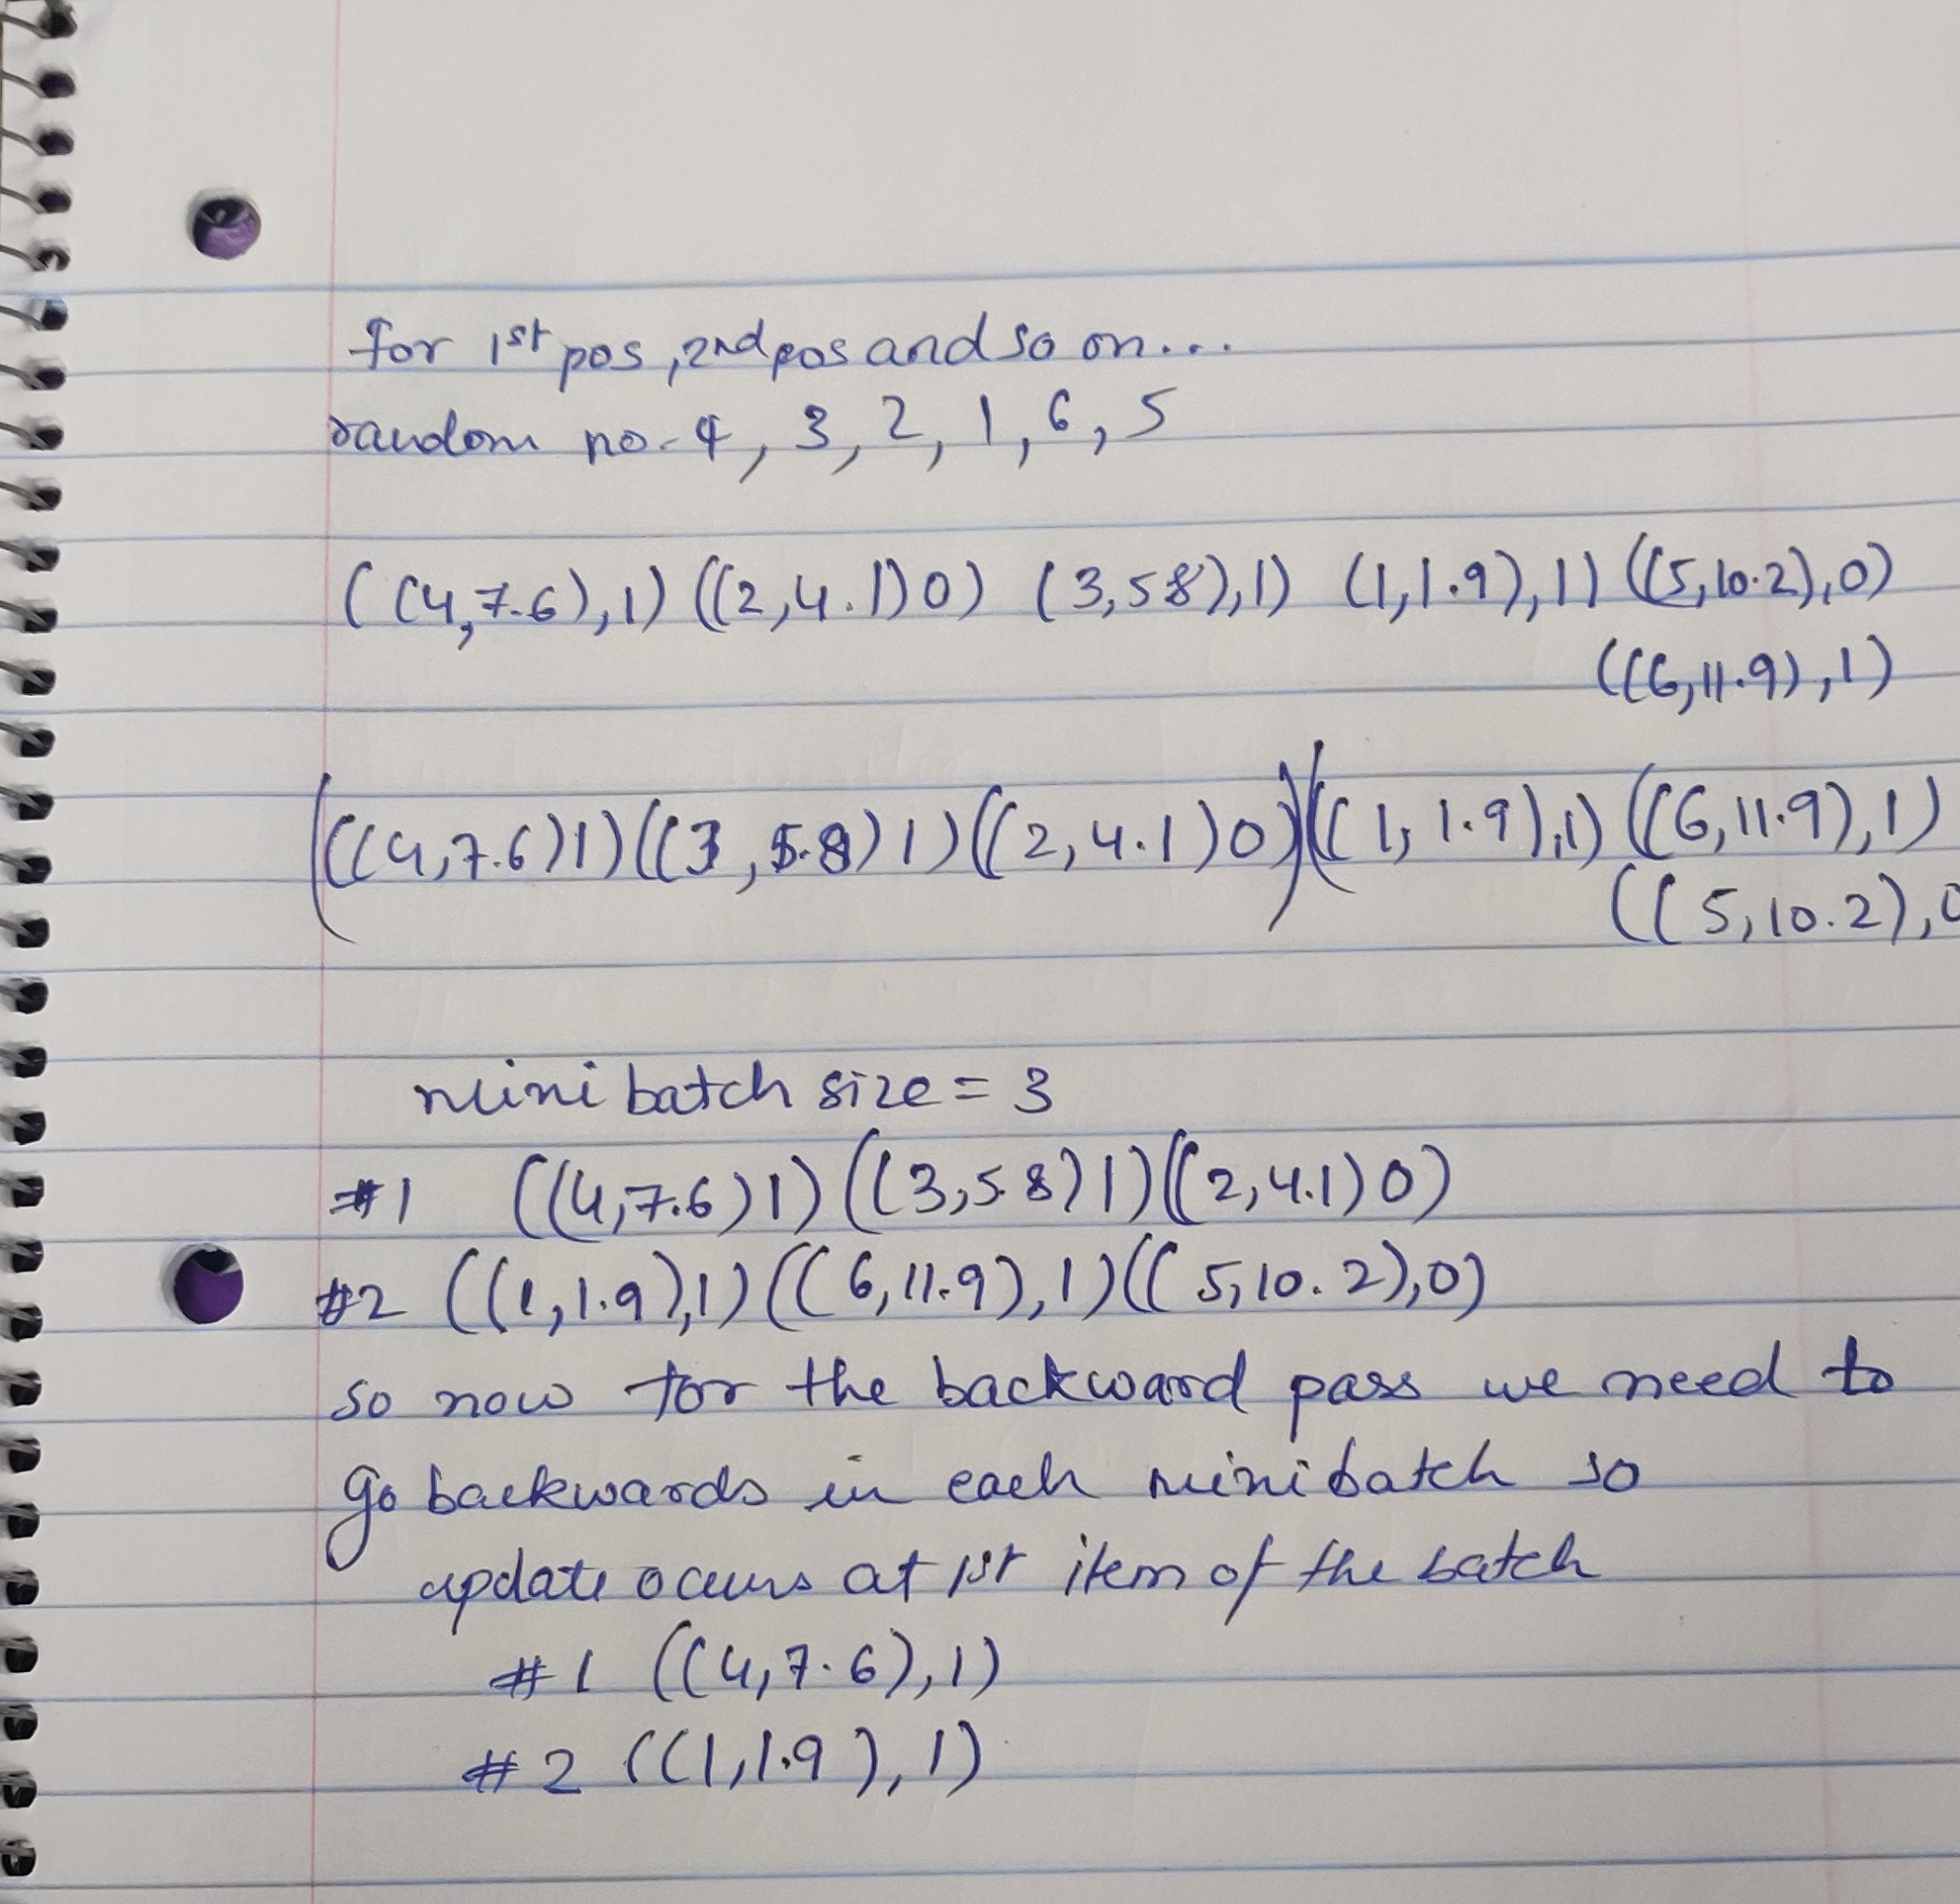 for 1st pos, 2nd pos and so on...
random no. 4, 3, 2, 1, 6, 5
((4,7.6),1) ((2,4.1)0) (3,58),1) (1,1.9),1) ((5,10.2),0)
((6,11.9),1)
(((4,7.6)1)((3,5.8)1)((2,4.1)0)) (((1,1.9),1) ((6,11.9),1)
((5,10.2),0
mini batch size = 3
#1 ((4,7.6)1) ((3,5.8)1) ((2,4.1)0)
#2 ((1,1.9),1) ((6,11.9),1) ((5,10.2),0)
so now for the backward pass we need to
go backwards in each mini batch so
update occurs at 1st item of the batch
#1 ((4,7.6),1)
#2 ((1,1.9),1)